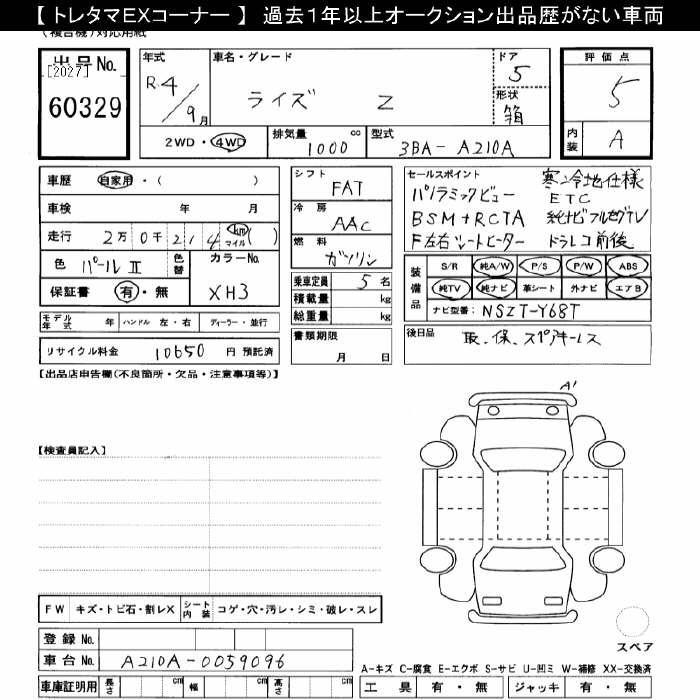 【 トレタマEXコーナー 】 過去１年以上オークション出品歴がない車両
(複合機)対応用紙
出品 No.
[2027]
60329
年式
R4/9月
車名・グレード
ライズ Z
ドア
5
形状
箱
2WD・4WD
排気量
1000 cc
型式
3BA-A210A
評価点
5
内装
A
車歴 自家用・( )
車検 年 月
走行 2万0千214 km マイル ( )
色 パールII
色替
カラーNo.
XH3
保証書 有・無
モデル年式 年 ハンドル 左・右 ディーラー・並行
リサイクル料金 10650 円 預託済
シフト
FAT
冷房
AAC
燃料
ガソリン
乗車定員 5 名
積載量 kg
総重量 kg
書類期限
月 日
セールスポイント 寒冷地仕様
パノラミックビュー ETC
BSM+RCTA 純ナビフルセグTV
F左右シートヒーター ドラレコ前後
装備品
S/R 純A/W P/S P/W ABS
純TV 純ナビ 革シート 外ナビ エアB
ナビ型番: NSZT-Y68T
後日品
取、保、スペアキーレス
【出品店申告欄(不良箇所・欠品・注意事項等)】
A'
【検査員記入】
FW キズ・トビ石・割レX シート内装 コゲ・穴・汚レ・シミ・破レ・スレ
登録 No.
車台 No. A210A-0059096
車庫証明用 長さ cm 幅 cm 高さ cm
スペア
A-キズ C-腐食 E-エクボ S-サビ U-凹ミ W-補修 XX-交換済
工具 有・無 ジャッキ 有・無